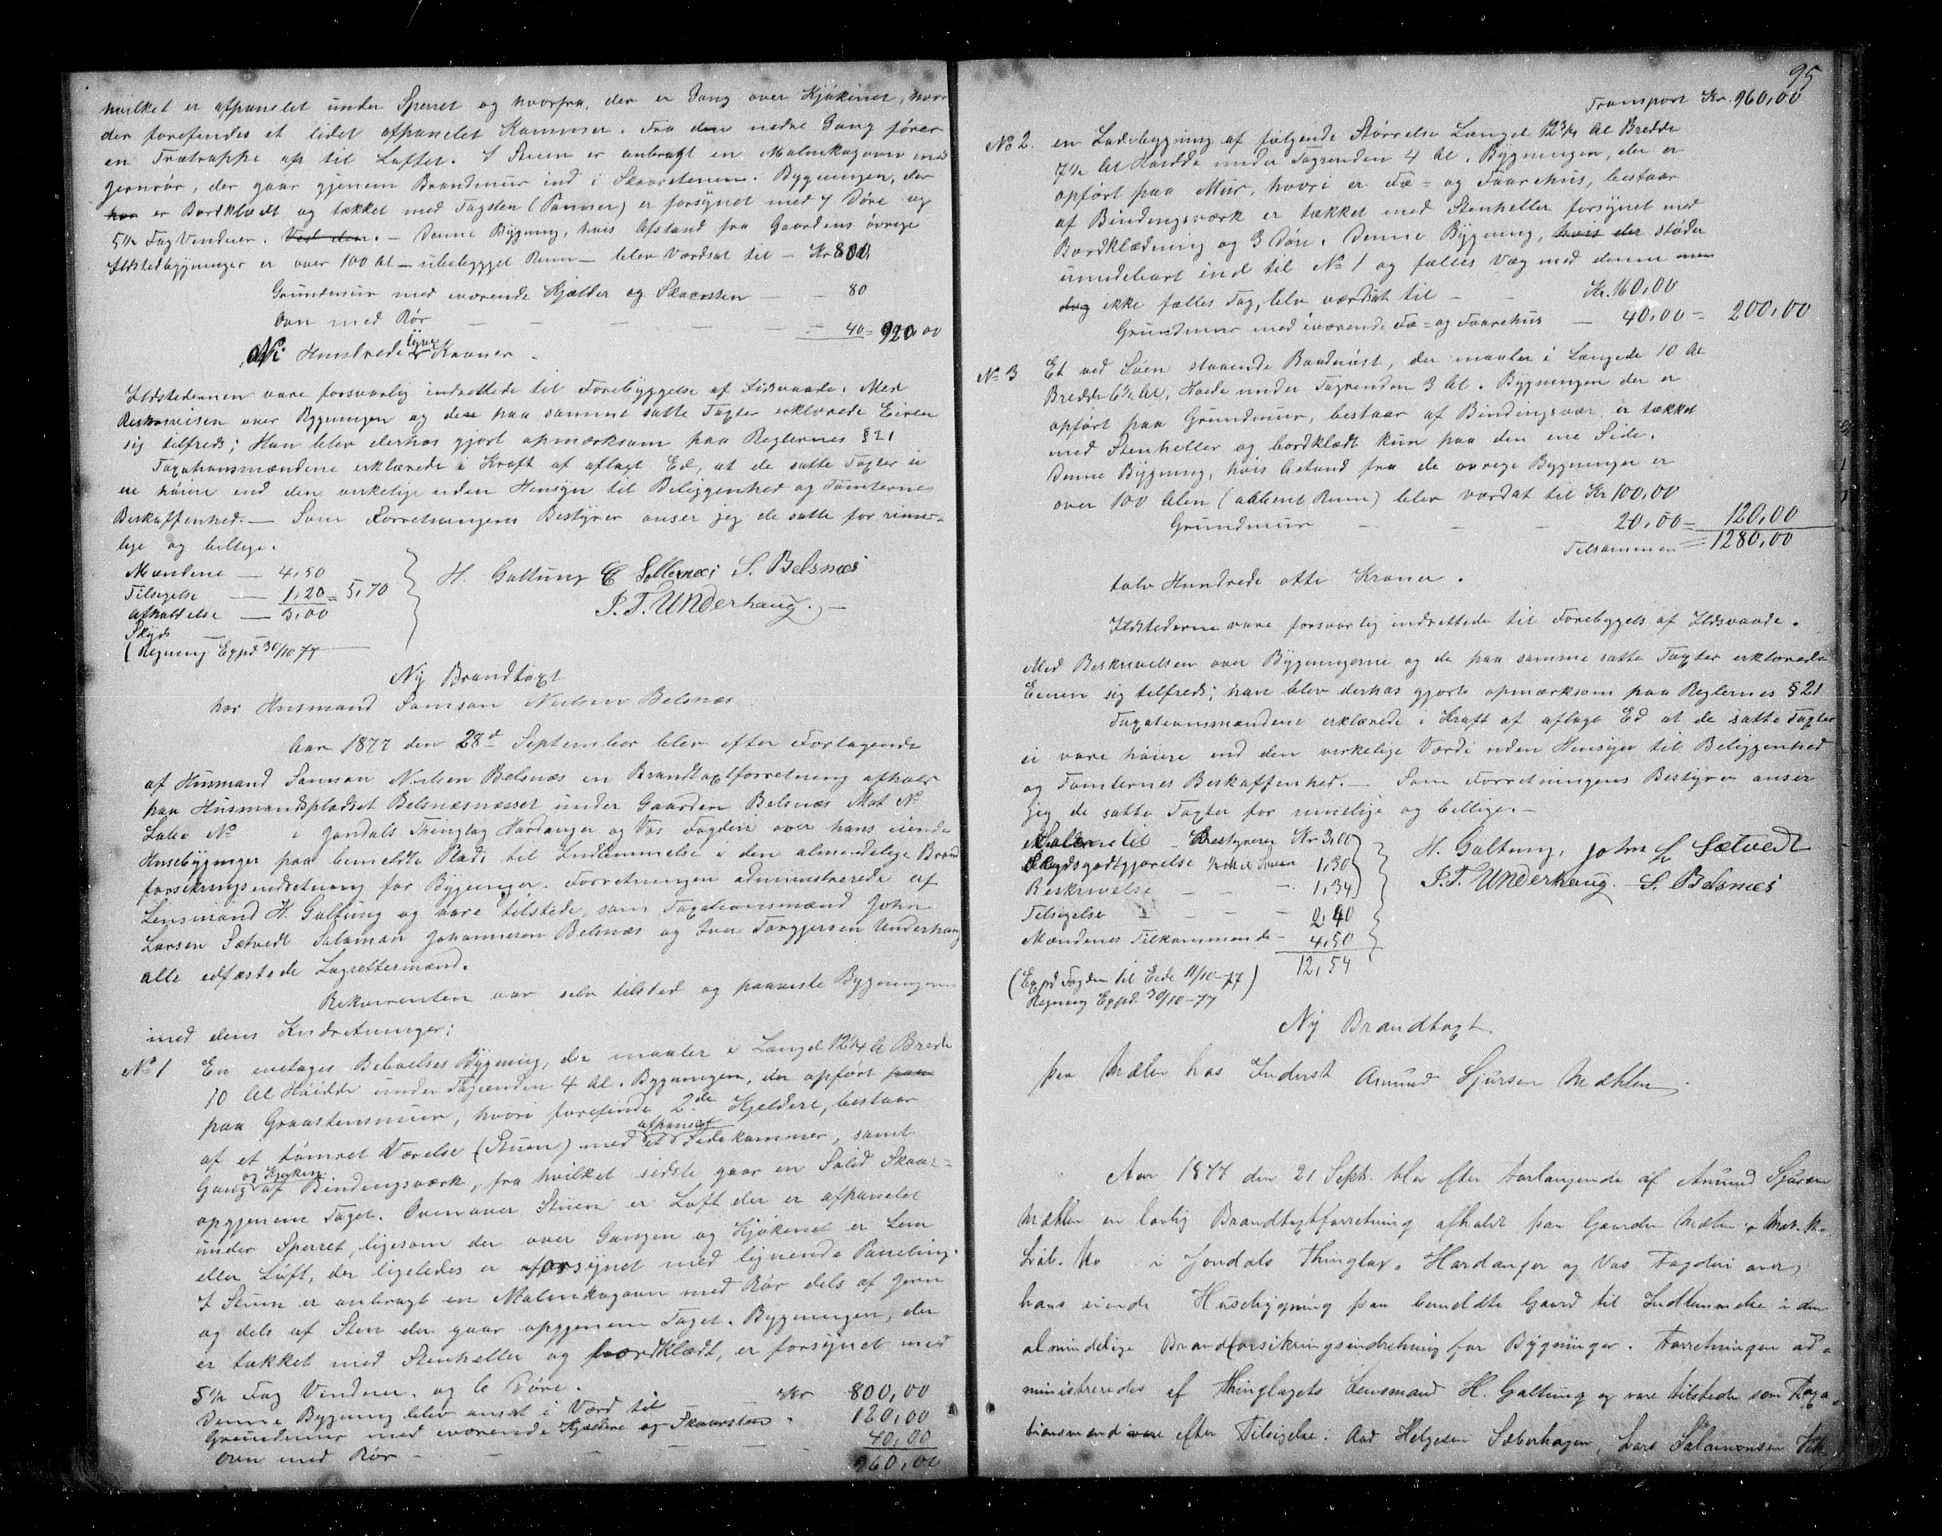 hvilket er afpanelet under Sperret og hvorfra der er Gang over Kjøkinet, hvor
der forefindes et lidet afpanelet Kammer. Fra den nedre Gang fører
en Trætrappe op til Loftet. I Stuen er anbragt en Malmkogovn med
Jernrør, der gaar gjenem Brandmur ind i Skaarstenen. Bygningen, der
har er Bordklædt og tækket med Tagsten (Panner) er forsynet med 7 Døre og
5½ Fag Venduer. Ved den. – Denne Bygning, hvis Afstand fra Gaardens øvrige
Ildstedbygninger er over 100 Al – ubebygget Rum – blev Værdsat til – Kr 800
Grundmur med iværende Kjælder og Skaarsten – – 80
Ovn med Rør – – – – – – 40 = 920,00
Ni Hundrede tyve Kroner.
Ildstederne vare forsvarlig indrettede til Forebyggelse af Ildsvaade. Med
Beskrivelsen over Bygningen og den paa samme satte Taxter erklærede Eieren
sig tilfreds; Han blev derhos gjort opmærksom paa Reglernes § 21
Taxationsmændene erklærede i Kraft af aflagt Ed, at de satte Taxter ei
er høiere end den virkelige uden Hensyn til Beliggenhed og Tomternes
Beskaffenhed. – Som Forretningens Bestyrer anser jeg de satte for rime-
lige og billige.
Mændene – 4,50
Tilsigelse – 1,20 = 5,70
Afholdelse – 3,00
Skyds
(Regning Expd 30/10 77
H. Galtung S. Belsnæs
P. T. Underhaug. –
Ny Brandtaxt
hos Husmand Samson Nielsen Belsnæs
Aar 1877 den 28d September blev efter Forlagende
af Husmand Samson Nielsen Belsnæs en Brandtaxtforretning afholdt
paa Husmandspladset Belsnæsnesset under Gaarden Belsnæs Mat No
Løbe No i Jondals Thinglag Hardanger og Vos Fogderi over hans eiende
Husebygninger paa bemeldte Plads til Indlemmelse i den almindelige Brand
forsikringsindretning for Bygninger. Forretningen administrerede af
Lensmand H. Galtung og vare tilstede som Taxationsmænd John
Larsen Sætvedt Salamon Johannesen Belsnæs og Iver Torgjersen Underhaug
alle edfæstede Lagrettesmænd.
Rekvirenten var selv tilsted og paaviste Bygningerne
med dens Indretninger:
No 1 En enetages Beboelses Bygning, der maaler i Længd 12¼ Al Brede
10 Al Høidde under Tagrenden 4 Al. Bygningen, der opført paa
paa Graastensmuur, hvori forefinde 2de Kjeldere, bestaar
afpanelet
af et tømret Værelse (Stuen) med et Sidekammer, samt
og Kjøken
Gang af Bindingsværk, fra hvilket sidste gaar en Solid Skaar-
opgjenem Taget. Ovenover Stuen er Loft der er afpanelet
under Sperret, ligesom der over Gangen og Kjøkenet er Lem
eller Loft, der ligeledes er forsynet med lignende Paneling.
I Stuen er anbragt en Malmkogovn med Rør dels af Jern
og dels af Sten der gaar opgjenem Taget. Bygningen, der
er tækket med Stenheller og bordklædt, er forsynet med
5½ Fag Venduer. og 6 Døre.
Denne Bygning blev ansat i Værd til Kr 800,00
Grundmur med iværende Kjeldere og Skaarsten – 120,00
Ovn med Rør – – – – 40,00
960,00
95
Transport Kr. 960,00
No 2. en Ladebygning af følgende Størrelse Længd 12¾ Al Bredde
7½ Al Høidde under Tagrenden 4 Al. Bygningen, der er
opført paa Mur, hvori er Fæ- og Faarehus, bestaar
af Bindingsværk er tækket med Stenheller forsynet med
Bordklædning og 3 Døre. Denne Bygning, hvis der støder
umidelbart ind til No 1 og fælles Væg med denne men
dog ikke fælles Tag, blev værdsat til – – Kr. 160,00
Grundmur med iværende Fæ- og Faarehus – 40,00 = 200,00
No 3 Et ved Søen staaende Baadnøst, der maaler i Længde 10 Al
Bredde 6½ Al, Høide under Tagrenden 3 Al. Bygningen der er
opført paa Grundmur, bestaar af Bindingsvær, er tækket
med Stenheller og bordklædt kun paa den ene Side.
Denne Bygning, hvis Afstand fra de øvrige Bygninger er
over 100 Alen (aabent Rum) blev værdat til Kr 100,00
Grundmur – – – 20,00 = 120,00
Tilsammen = 1280,00
tolv Hundrede otti Kroner.
Ildstederne vare forsvarlig indrettede til Forebyggels af Ildsvaade.
Med Beskrivelsen over Bygningerne og de paa samme satte Taxter erklærede
Eieren sig tilfreds; han blev derhos gjorts opmærksom paa Reglernes § 21
Taxationsmændene erklærede i Kraft af aflagt Ed at de satte Taxter
ei vare høiere end den virkelige Værdi uden Hensyn til Beliggenhed
og Tomternes Beskaffenhed. – Som Forretningens Bestyrer anser
jeg de satte Taxter for rimelige og billige. –
Bestyreren Kr. 3,00
Skydsgodtgjørelse 1,30
Beskrivelse – – 1,34
Tilsigelse – – – 2,40
Mændenes Tilkommende – 4,50
12,54
(Expd Fogden til Eede 11/10–77)
Regning Expd. 30/10–77
H. Galtung, John L Sætvedt
P. T. Underhaug. S. Belsnæs
Ny Brandtaxt.
paa Mæhlen hos Inderst Amund Sjursen Mæhlen.
Aar 1877 den 21 Sept. blev efter Forlangende af Amund Sjursen
Mæhlen en lovlig Brandtaxtforretning afholdt paa Gaarden Mæhlen Mat. No
Løb. No i Jondals Thinglag, Hardanger og Vos Fogderi over
hans eiende Husebygning paa bemeldte Gaard til Indlemmelse i den
almindelige Brandforsikringsindretning for Bygninger. Forretningen ad-
ministreredes af Thinglagets Lensmand H. Galtung og vare tilstede som Taxa-
tionsmænd vare efter Tilsigelse: Aad Helgesen Sæberhagen, Lars Salamonsen